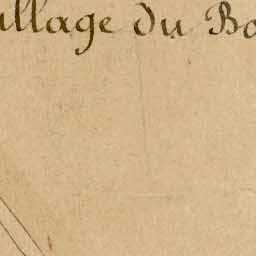 illage du Bo